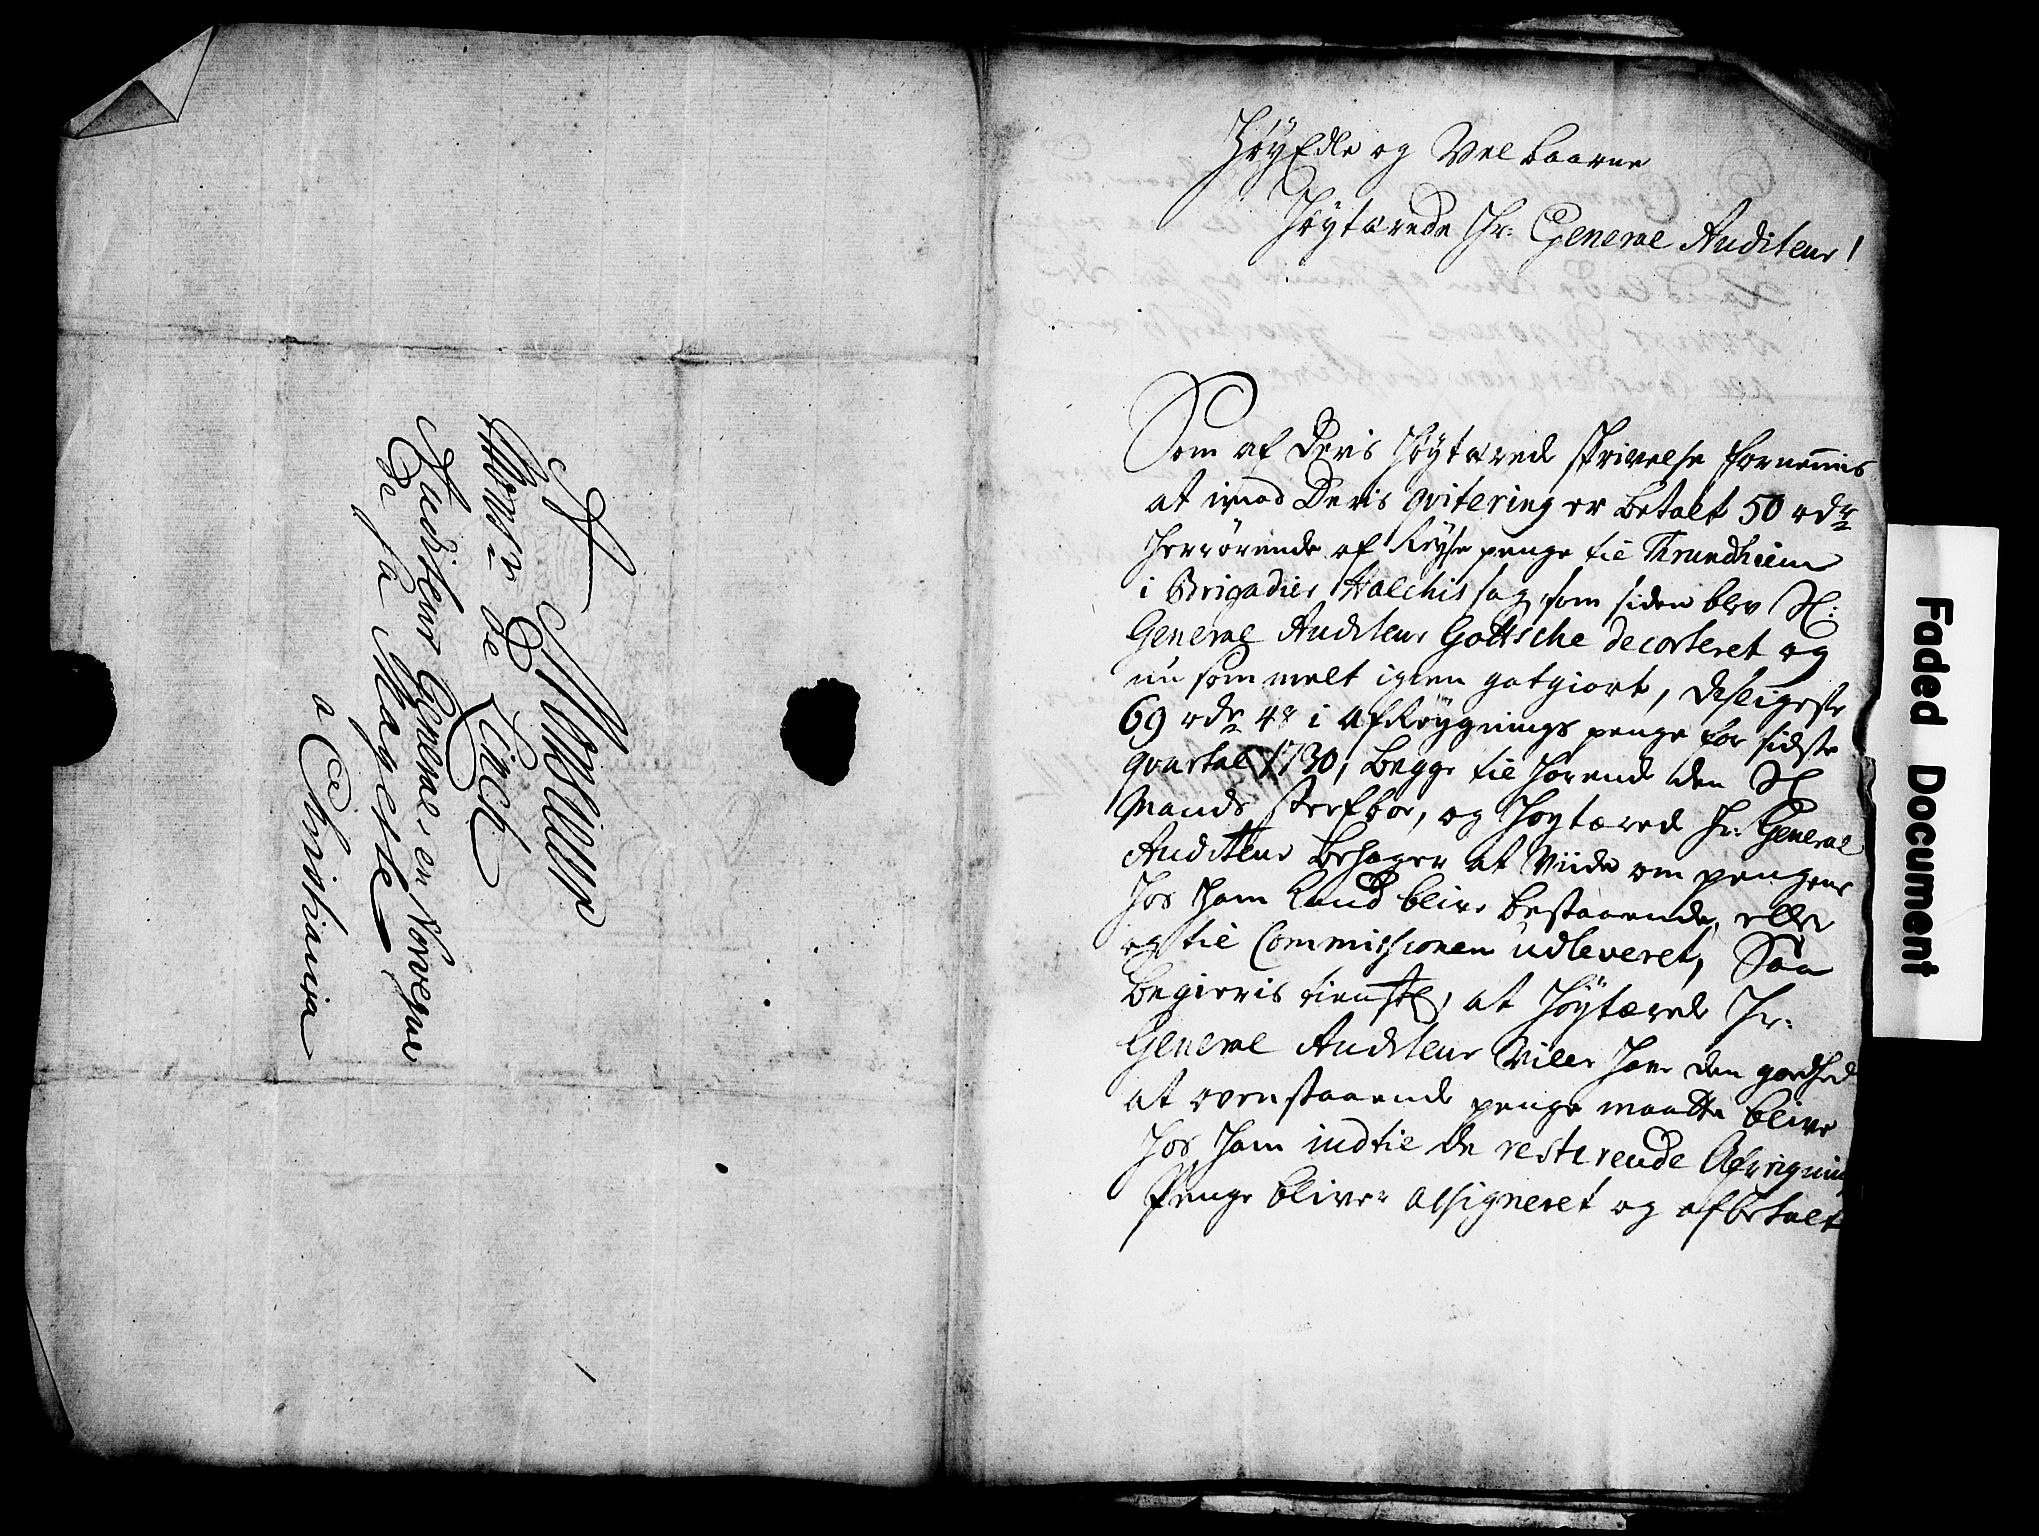 A Monsieur
Monsr de Lück
Auditeur General en Norvegue
de sa Majesté
a Christiania
HøyEdle og Velbaarne
Høytærede Hr: General Auditeur!
Som af Deris Høytærede skrivelse fornemmis
at imod Deris qvitering er betalt 50 rdr
herrørende af Reyse penge til Trundhiem
i Brigadier Halchis sag, som siden blev Sl:
General Auditeur Gottsche decorteret og
nu som melt igien gotgiort, desligeste
69 rdr 48 i Afkøygnings penge for sidste
qvartal 1730, begge til hørende den Sl
Mands sterfboe, og Høytærede Hr: General
Auditeur behager at Viide om pengene
hos ham kand blive bestaaende, eller
og til Commissionen udleveret, Saa
begieris tienstl, at Høytærede Hr:
General Auditeur Viller have den godhed
at ovenstaaende penge maatte blive
hos ham indtil de resterende Afrigning
Penge bliver assigneret og afbetalt
Faded Document